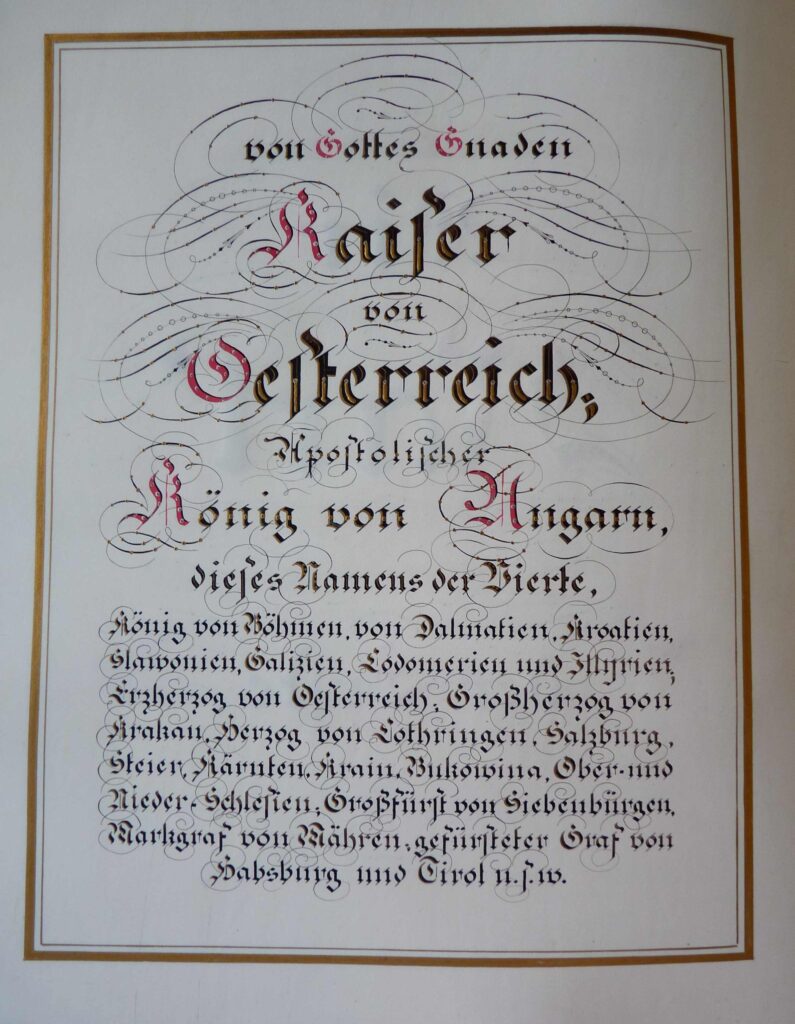 von Gottes Gnaden
Kaiser
von
Oesterreich;
Apostolischer
König von Ungarn,
dieses Namens der Vierte,
König von Böhmen, von Dalmatien, Kroatien,
Slawonien, Galizien, Lodomerien und Illyrien;
Erzherzog von Oesterreich; Großherzog von
Krakau, Herzog von Lothringen, Salzburg,
Steier, Kärnten, Krain, Bukowina, Ober- und
Nieder-Schlesien; Großfürst von Siebenbürgen,
Markgraf von Mähren; gefürsteter Graf von
Habsburg und Tirol u.s.w.